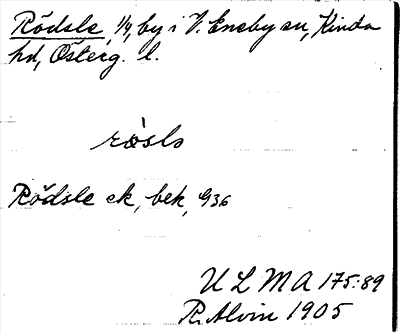 Rödsle, 1/4, by i V. Eneby sn, Kinda
hd, Österg. l.
rœ̀slɔ
Rödsle ek, bek, 936
U L M A 175:89
R. Alvin 1905